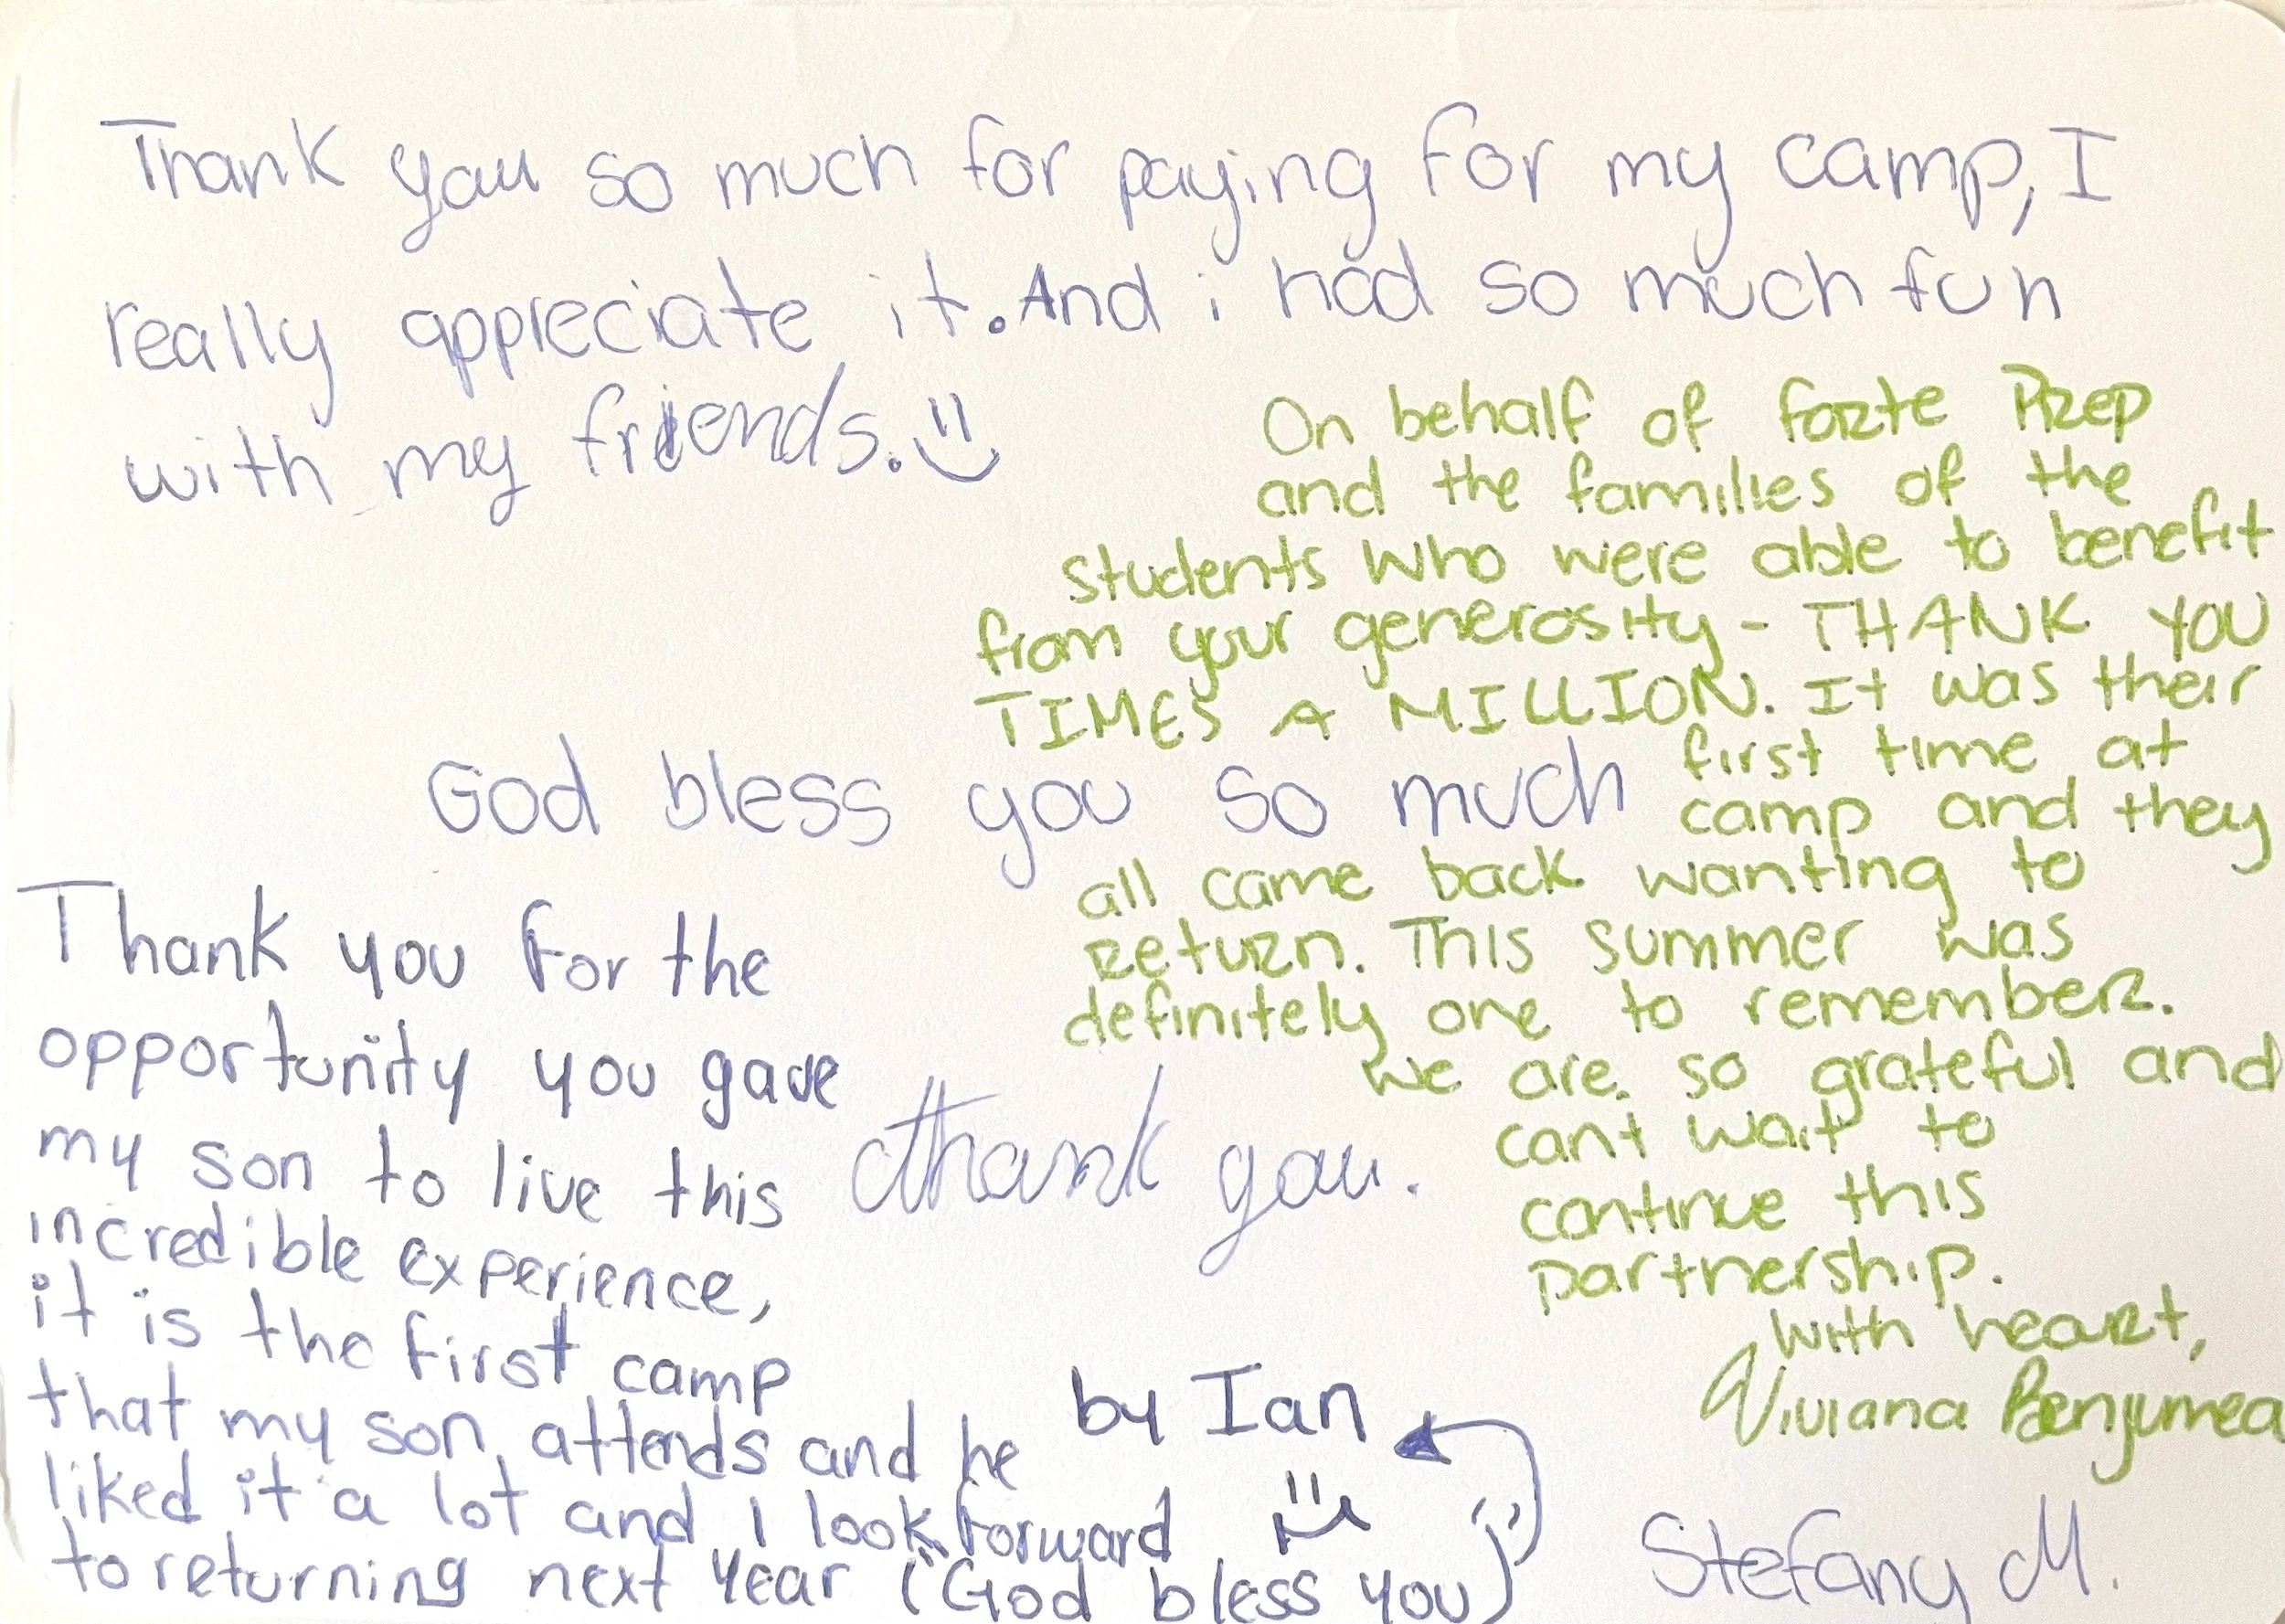 Thank you so much for paying for my camp, I
really appreciate it. And i had so much fun
with my friends. :)
On behalf of forte Prep
and the families of the
students who were able to benefit
from your generosity - THANK YOU
TIMES A MILLION. It was their
first time at
camp and they
all came back wanting to
return. This summer was
definitely one to remember.
we are so grateful and
cant wait to
continue this
partnership.
with heart,
Viviana Benjumea
God bless you so much
Thank you for the
opportunity you gave
my son to live this
incredible experience,
it is the first camp
that my son attends and he
liked it a lot and I look forward
to returning next year (God bless you)
thank you.
by Ian
Stefany M.